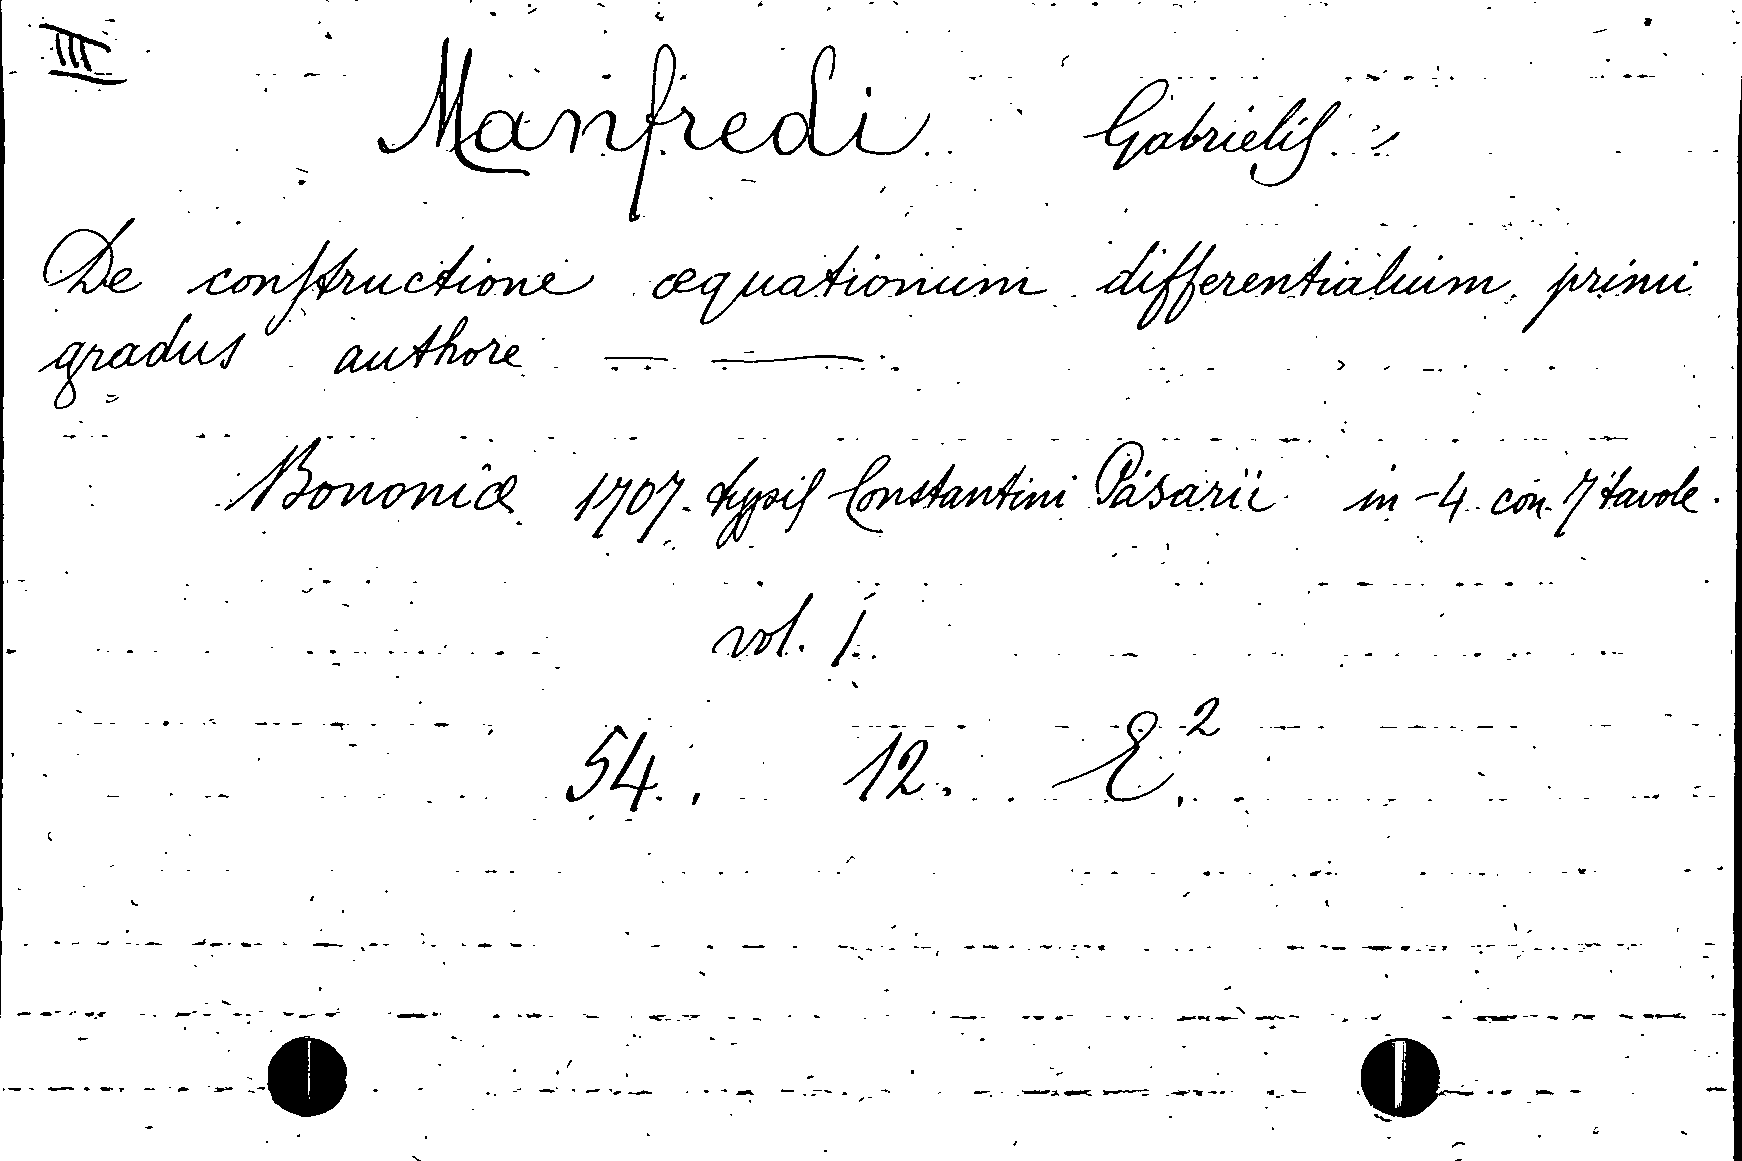 III
Manfredi Gabrielis
De conſtructione æquationum differentialium primi
gradus authore — —
Bononiæ 1707. typis Constantini Pisarii in-4 con 7 tavole.
vol. 1.
54. 12. E².